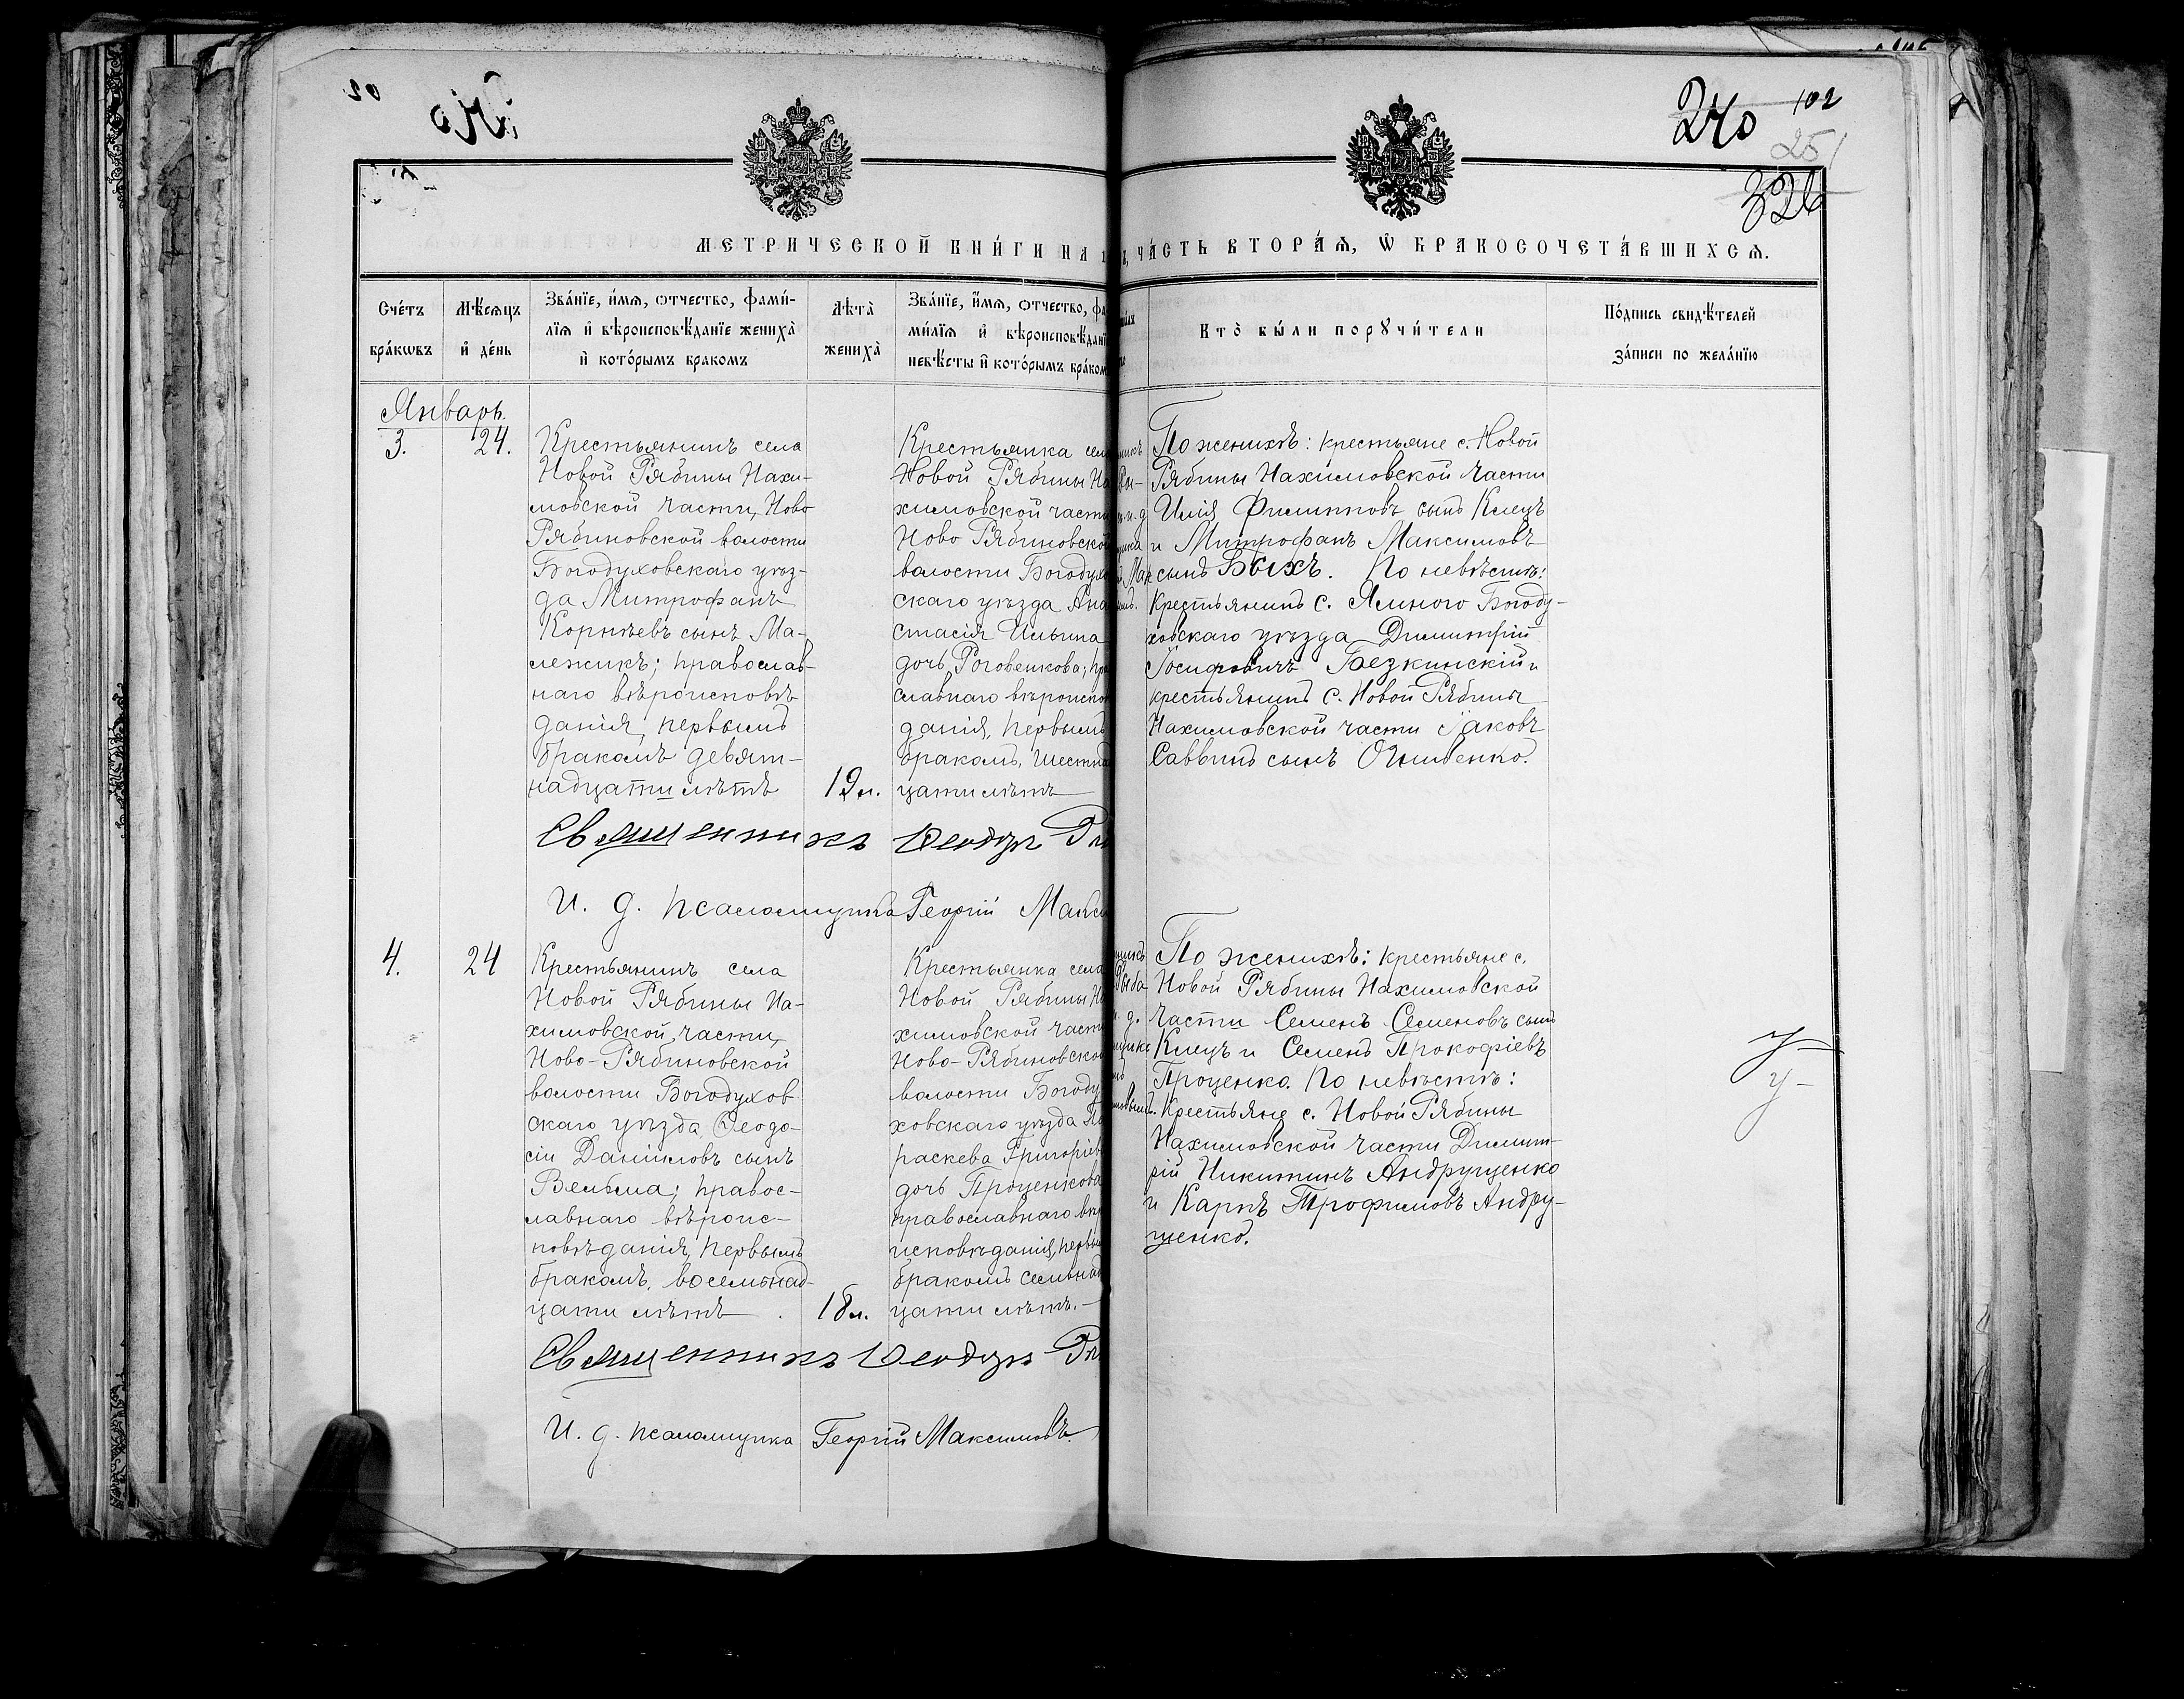 240 102
251
326
МЕТРИЧЕСКОЙ КНИ́ГИ НА
ЧА́СТЬ ВТОРА́Ѧ, Ѡ҆ БРАКОСОЧЕТА́ВШИХСѦ.
Сче́тъ бра́кѡвъ
Мѣ́сѧцъ и҆ де́нь
Зва́нїе, и҆́мѧ, ѻтчество, фами́-
лїѧ и҆ вѣроисповѣ́данїе жениха̀
и҆ кото́рымъ бракомъ
Лѣта̀ жениха̀
Зва́нїе, и҆́мѧ, ѻтчество, фа
ми́лїѧ и҆ вѣроисповѣ́данї
невѣ́сты и҆ кото́рымъ бра́ком
Кто̀ бы́ли порꙋчи́тели
По́дпись свидѣ́телей
за́писи по жела́нїю
Январь.
3. 24.
Крестьянинъ села
Новой Рябины Нахи-
мовской части, Ново
Рябиновской волости
Богодуховскаго уѣз-
да Митрофанъ
Корнѣевъ сынъ Ма-
лежикъ; православ-
наго вѣроисповѣ-
данія, первымъ
бракомъ девят-
надцати лѣтъ
19 л.
Крестьянка сел
Новой Рябины На
химовской части
Ново Рябиновской
волости Богодухо
скаго уѣзда Ана
стасія Ильина
дочь Роговенкова; пра
славнаго вѣроиспо
данія, первымъ
бракомъ, шестнад
цати лѣтъ
По женихѣ: крестьяне с. Новой
Рябины Нахимовской части
Илія Филипповъ сынъ Клецъ
и Митрофанъ Максимовъ
сынъ Быхъ. По невѣстѣ:
крестьянинъ с. Ямного Богоду-
ховскаго уѣзда Димитрій
Іосифовичъ Безкинскій и
крестьянинъ с. Новой Рябины
Нахимовской части Іаковъ
Саввинъ сынъ Огнивенко.
Священникъ Ѳеодоръ
И. д. псаломщика Георгій Макси
4. 24
Крестьянинъ села
Новой Рябины На-
химовской части,
Ново-Рябиновской
волости Богодухов
скаго уѣзда Ѳеодо-
сій Даніиловъ сынъ
Вельма; правос-
лавнаго вѣроис-
повѣданія, первымъ
бракомъ, восемьнад-
цати лѣтъ
18 л.
Крестьянка села
Новой Рябины На
химовской част
Ново-Рябиновской
волости Богоду
ховскаго уѣзда Па
раскева Григоріев
дочь Проценкова
православнаго вѣр
исповѣданія, первы
бракомъ семьнад
цати лѣтъ.
По женихѣ: крестьяне с.
Новой Рябины Нахимовской
части Семенъ Семеновъ сынъ
Клецъ и Семенъ Прокофіевъ
Проценко. По невѣстѣ:
Крестьяне с. Новой Рябины
Нахимовской части Димит-
рій Никитинъ Андрущенко
и Карпъ Трофимовъ Андру-
щенко.
Священникъ Ѳеодоръ
И. д. псаломщика Георгій Максимовъ.